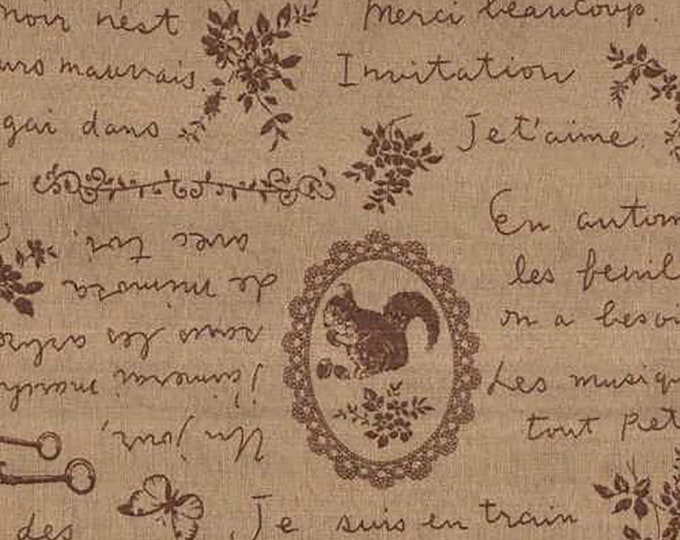 noir n'est
urs mauvais.
gai dans
Merci beaucoup.
Invitation
Je t'aime.
En autom
les feuil
on a besoi
Les musiqu
tout pet
Un jour,
j'aimerai march
sans les arbre
de mimosa
avec toi.
des
Je suis en train